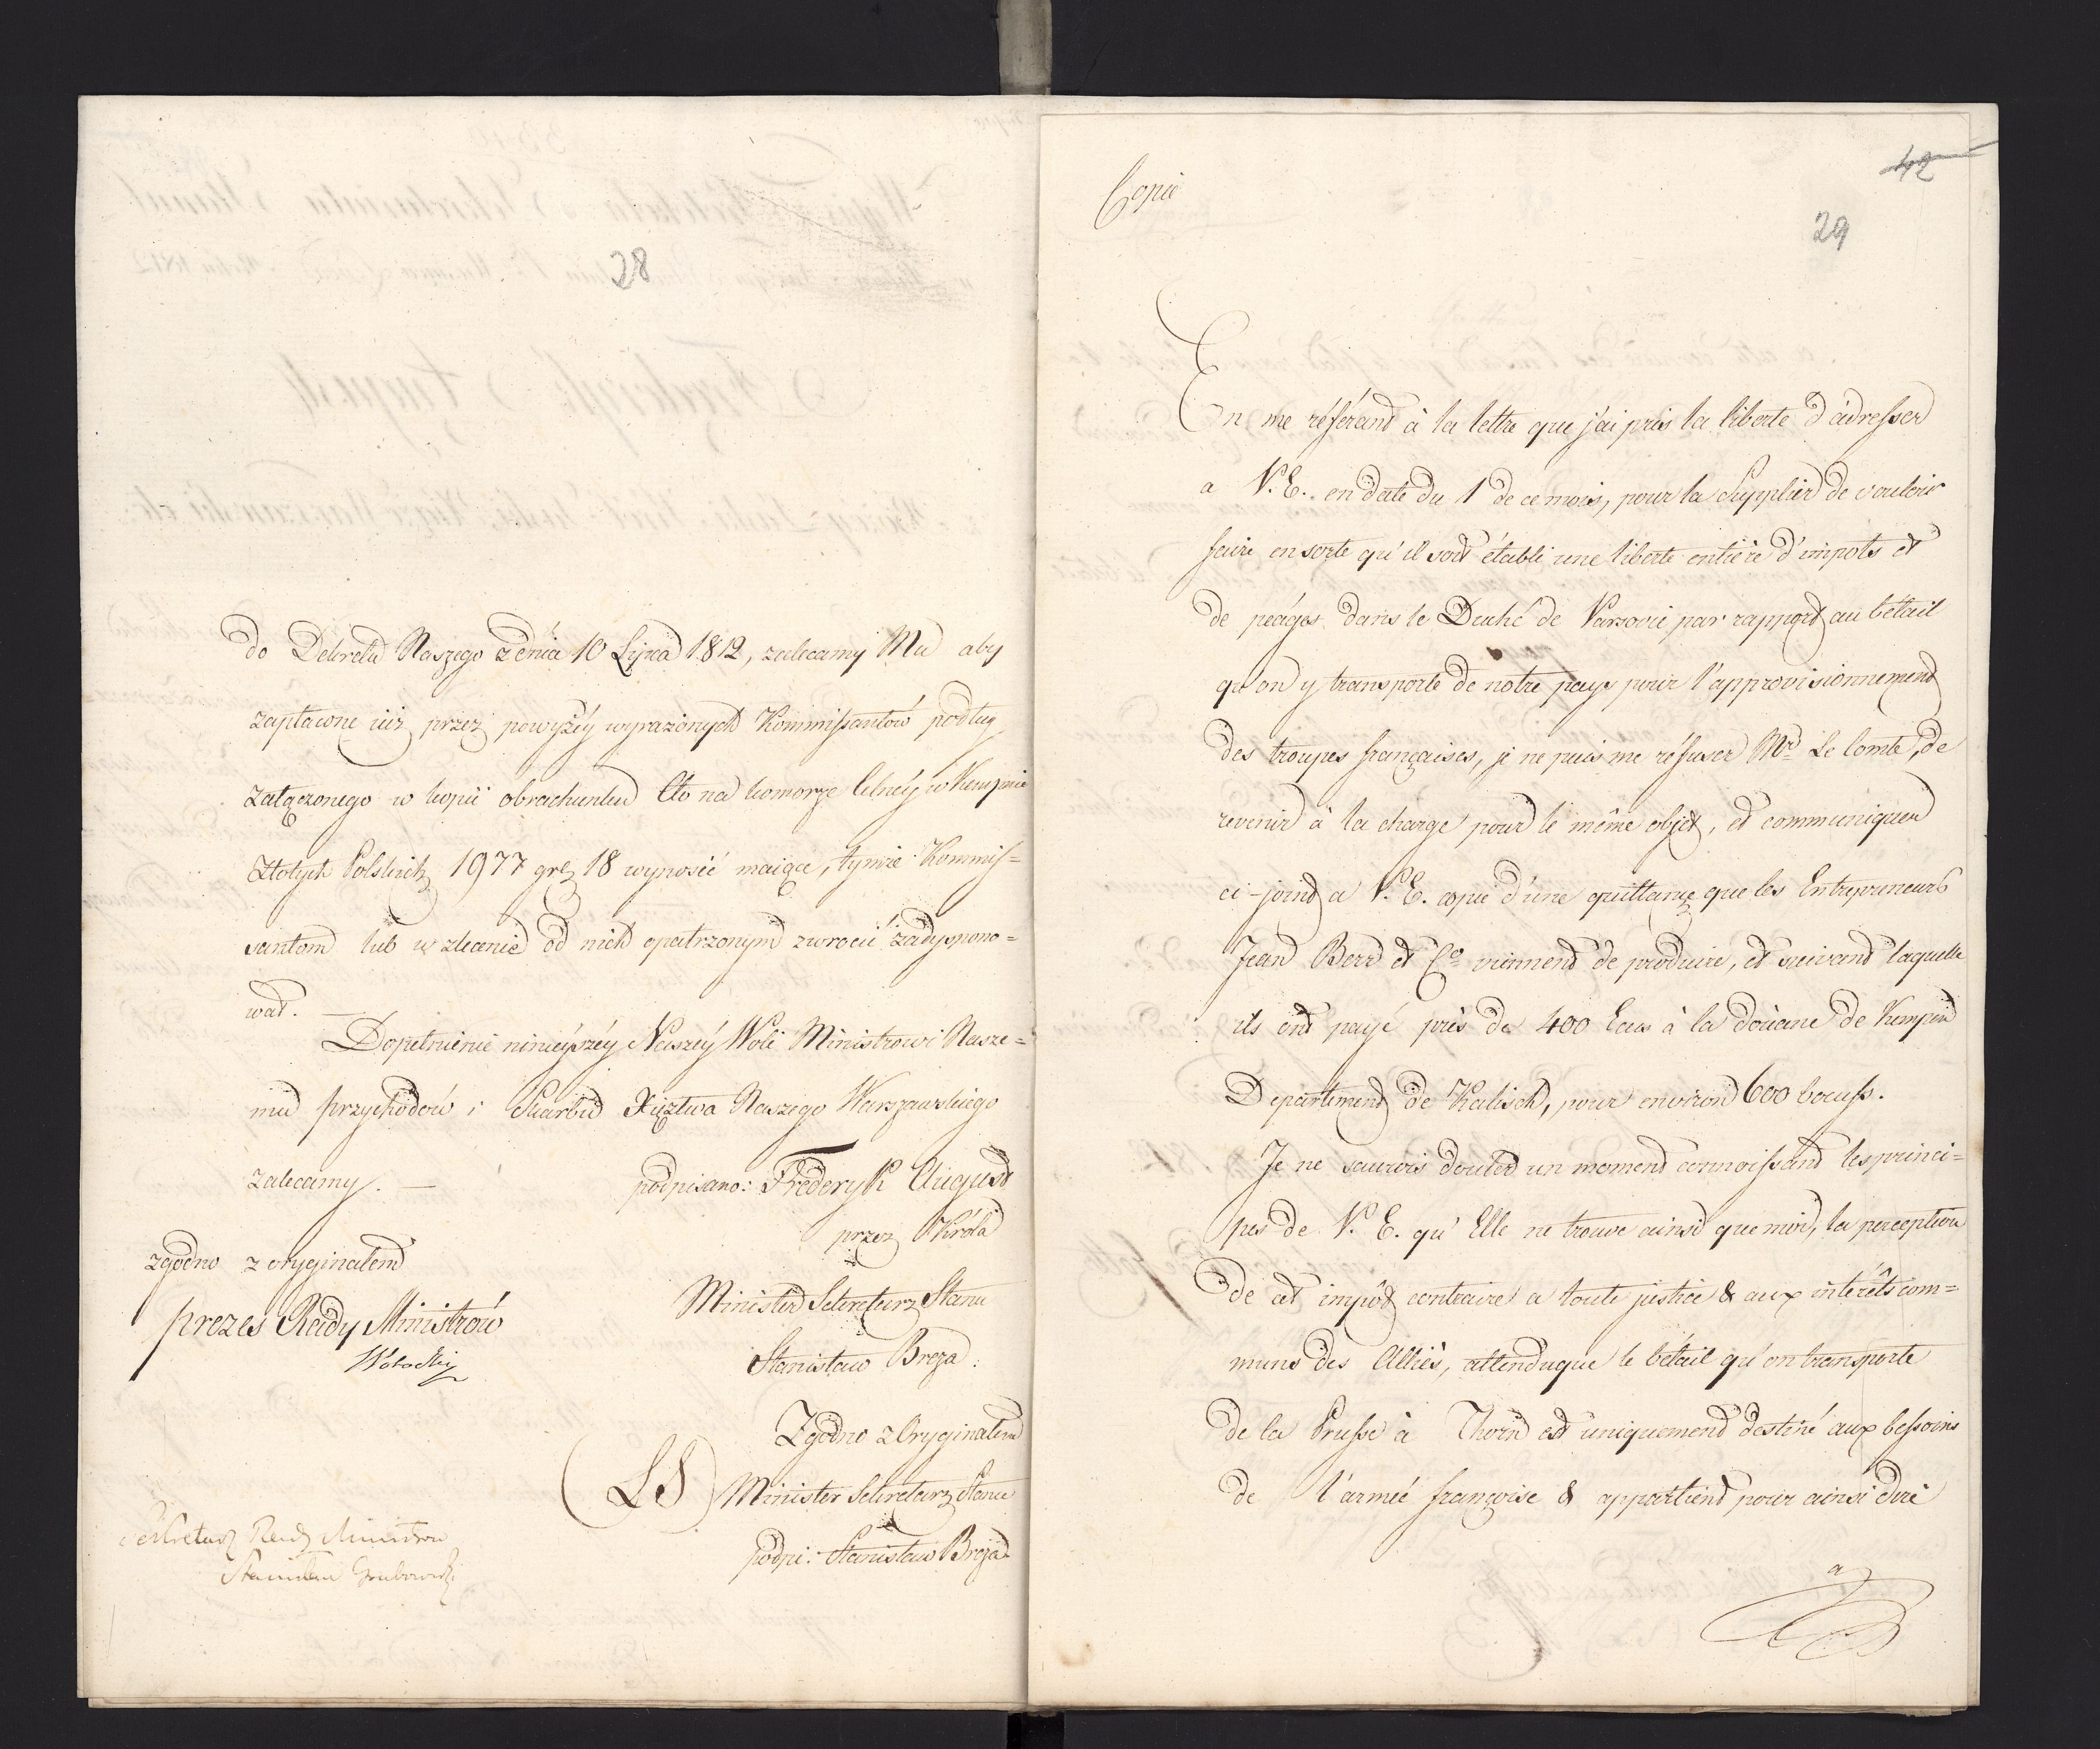 28
do Dekretu Naszego z dnia 10 Lipca 1812, zalecamy Mu aby
zapłacone iuż przez powyżéy wyrażonych Kommissantów podług
załączonego w kopii obrachunku Cło na komorze Celnéy w Kempnie
Złotych Polskich 1977 gr 18 wynosić maiące, tymże Kommis=
santom lub w zlecenie od nich opatrzonym zwrócić zadyspono=
wał. —
Dopełnienie ninieyszéy Naszéy Woli Ministrowi Nasze=
mu przychodów i Skarbu Xięztwa Naszego Warszawskiego
zalecamy. — podpisano: Frederyk August
przez Króla
zgodno z oryginałem
Minister Sekretarz Stanu
prezes Rady Ministrów
Stanisław Breza.
Zgodno z Oryginałem
(LS) Minister Sekretarz Stanu
podpi: Stanisław Breza
Sekretarz Rady Ministrów
Stanisław Grabowski
Copie
42
29
En me référant à la lettre que j'ai pris la liberte d'adresser
a V. E. en date du 1 de ce mois, pour la Supplier de vouloir
faire en sorte qu'il soit établi une liberte entière d'impots et
de peages dans le Duché de Varsovie par rapport au betail
qu'on y transporte de notre pays pour l'approvisionnement
des troupes françaises, je ne puis me réfuser Mr Le Comte, de
revenir à la charge pour le même objet, et communiquer
ci-joint a V. E. copie d'une quittance que les Entrepreneurs
Jean Berr et Co viennent de produire, et suivant laquelle
ils ont payé près de 400 Ecus à la doüane de Kempen
Departement de Kalisch, pour environ 600 boeufs.
Je ne saurois douter un moment connoissant les princi=
pes de V. E. qu'Elle ne trouve ainsi que moi, la perception
de cet impôt contraire a toute justice & aux intérêts com=
muns des Alliés, attendu que le bétail qu'on transporte
de la Prusse à Thorn est uniquement destiné aux bessoins
de l'armée françoise & appartient pour ainsi dire
a